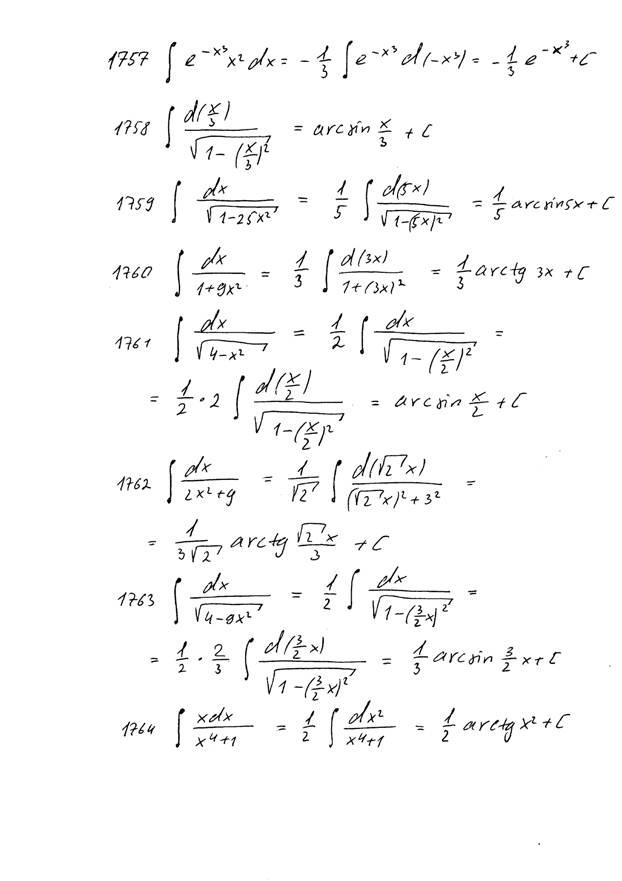 1757 ∫ e^{-x³} x² dx = -1/3 ∫ e^{-x³} d(-x³) = -1/3 e^{-x³} + C
1758 ∫ d(x/3) / √(1-(x/3)²) = arcsin x/3 + C
1759 ∫ dx / √(1-25x²) = 1/5 ∫ d(5x) / √(1-(5x)²) = 1/5 arcsin5x + C
1760 ∫ dx / (1+9x²) = 1/3 ∫ d(3x) / (1+(3x)²) = 1/3 arctg 3x + C
1761 ∫ dx / √(4-x²) = 1/2 ∫ dx / √(1-(x/2)²) =
= 1/2 · 2 ∫ d(x/2) / √(1-(x/2)²) = arcsin x/2 + C
1762 ∫ dx / (2x²+9) = 1/√2 ∫ d(√2 x) / ((√2 x)²+3²) =
= 1/(3√2) arctg √2 x/3 + C
1763 ∫ dx / √(4-9x²) = 1/2 ∫ dx / √(1-(3/2 x)²) =
= 1/2 · 2/3 ∫ d(3/2 x) / √(1-(3/2 x)²) = 1/3 arcsin 3/2 x + C
1764 ∫ xdx / (x⁴+1) = 1/2 ∫ dx² / (x⁴+1) = 1/2 arctg x² + C